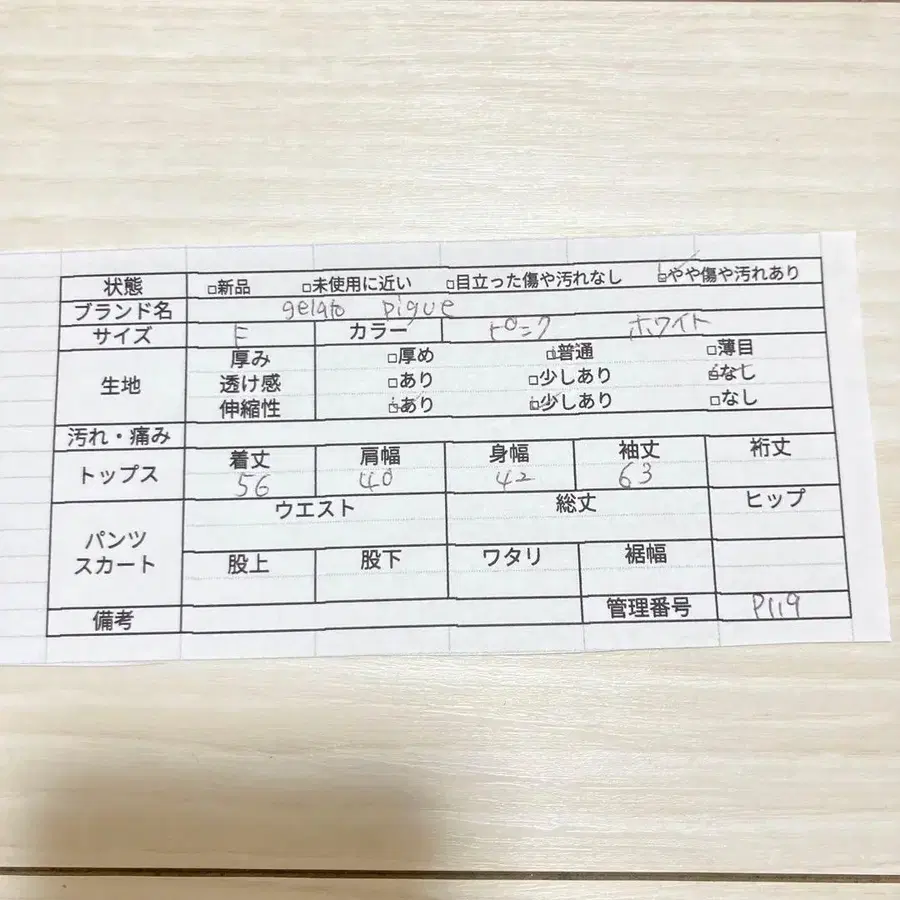 状態 □新品 □未使用に近い □目立った傷や汚れなし ☑やや傷や汚れあり
ブランド名 gelato pique
サイズ F カラー ピンク ホワイト
生地 厚み □厚め ☑普通 □薄目
透け感 □あり □少しあり ☑なし
伸縮性 ☑あり ☑少しあり □なし
汚れ・痛み
トップス 着丈 肩幅 身幅 袖丈 裄丈
56 40 42 63
パンツ スカート ウエスト 総丈 ヒップ
股上 股下 ワタリ 裾幅
備考 管理番号 P119